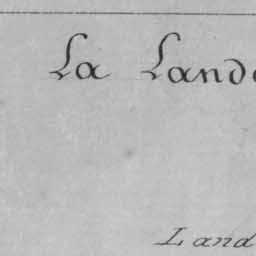 La Land
Land